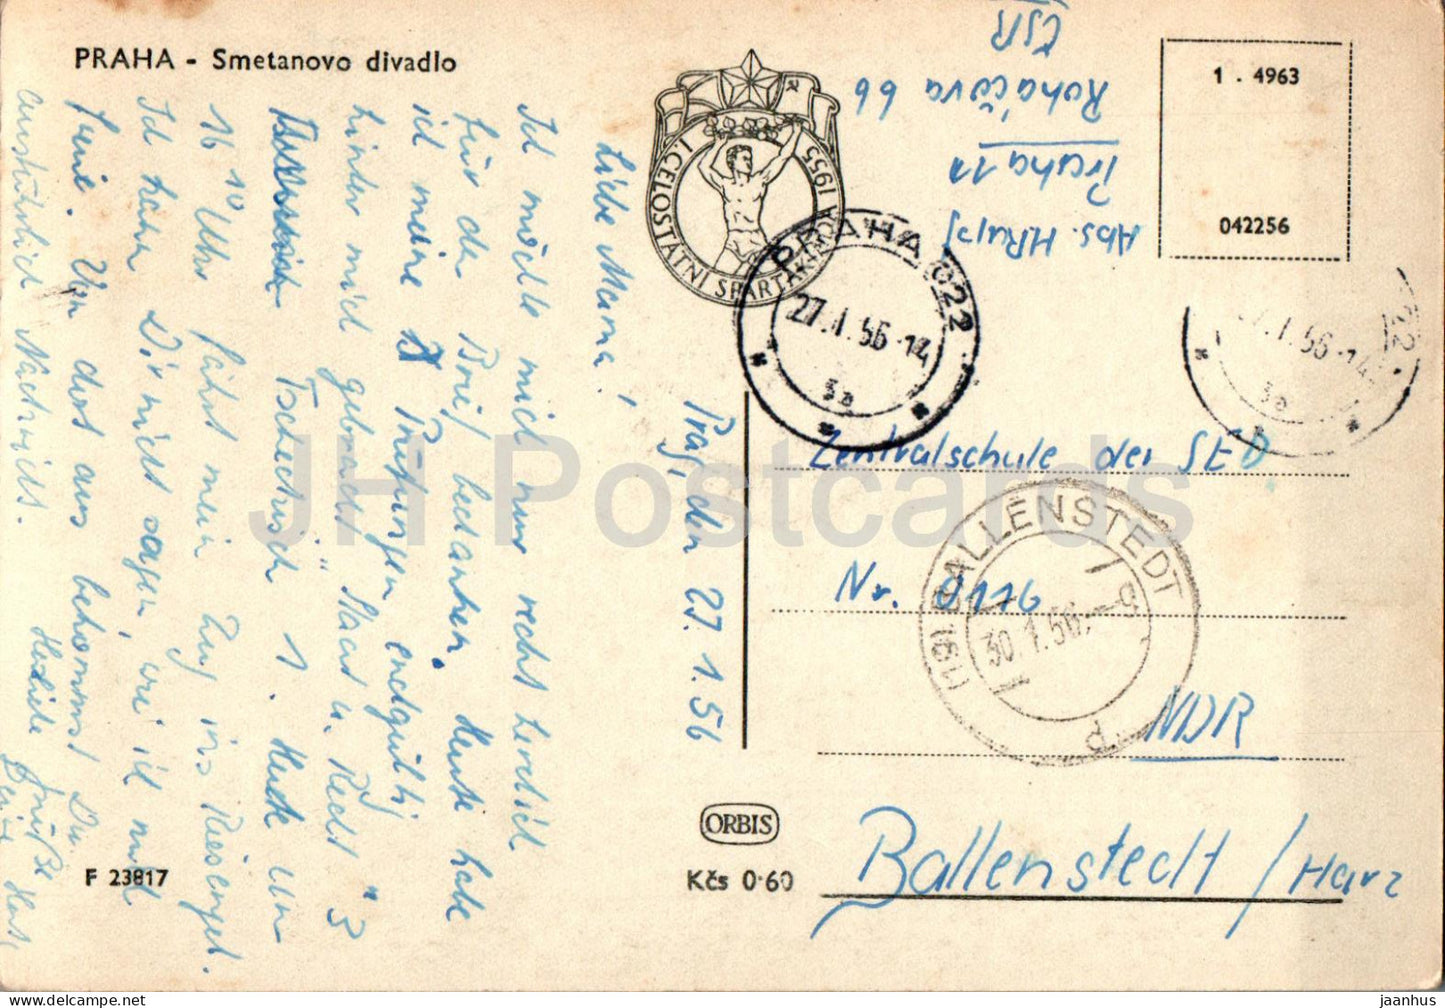 PRAHA - Smetanovo divadlo
I. CELOSTÁTNÍ SPARTAKIÁDA 1955
1 . 4963
042256
Abs. H.
Praha 11
Roháčova 66
ČSR
PRAHA 022
27.I.56-14
3a
27.I.56-14
22
3a
Prag, den 27.1.56
Liebe Mama,
Ich möchte mich nur recht herzlich
für den Brief bedanken. Heute habe
ich meine Prüfungen endgültig
hinter mich gebracht. Staat u. Recht "3"
Tschechisch 1. Heute um
16 10 Uhr fährt mein Zug ins Riesengeb.
Ich kann Dir nicht sagen, wie ich mich
freue. Von dort aus bekommst Du
ausführlich Nachricht.
Herzliche Grüße
Dein Horst
Zentralschule der SED
Nr. 9116
NDR
Ballenstedt / Harz
(19b) BALLENSTEDT
30.1.56.-9
P
ORBIS
Kčs 0·60
F 23817
JH Postcards
delcampe.net
jaanhus